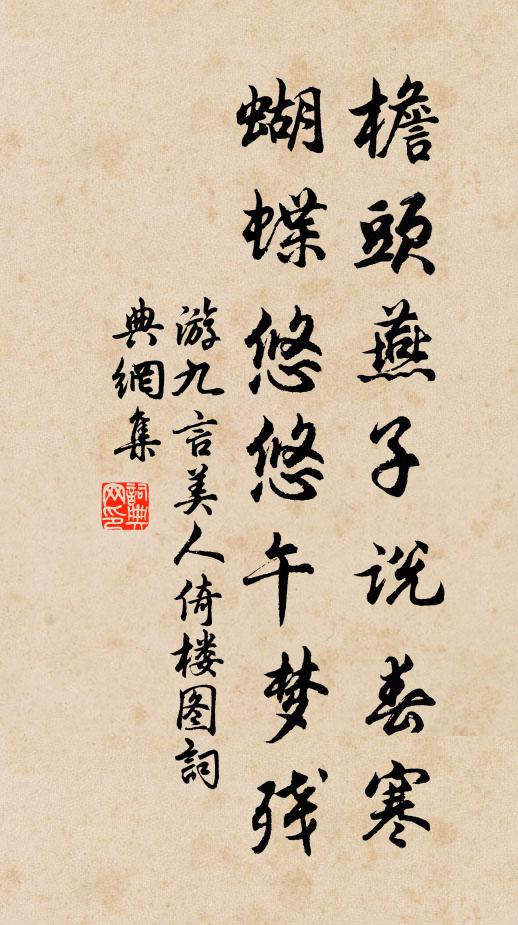 檐頭燕子说春寒
蝴蝶悠悠午梦残
游九言美人倚楼图詞
典網集
詞典网印